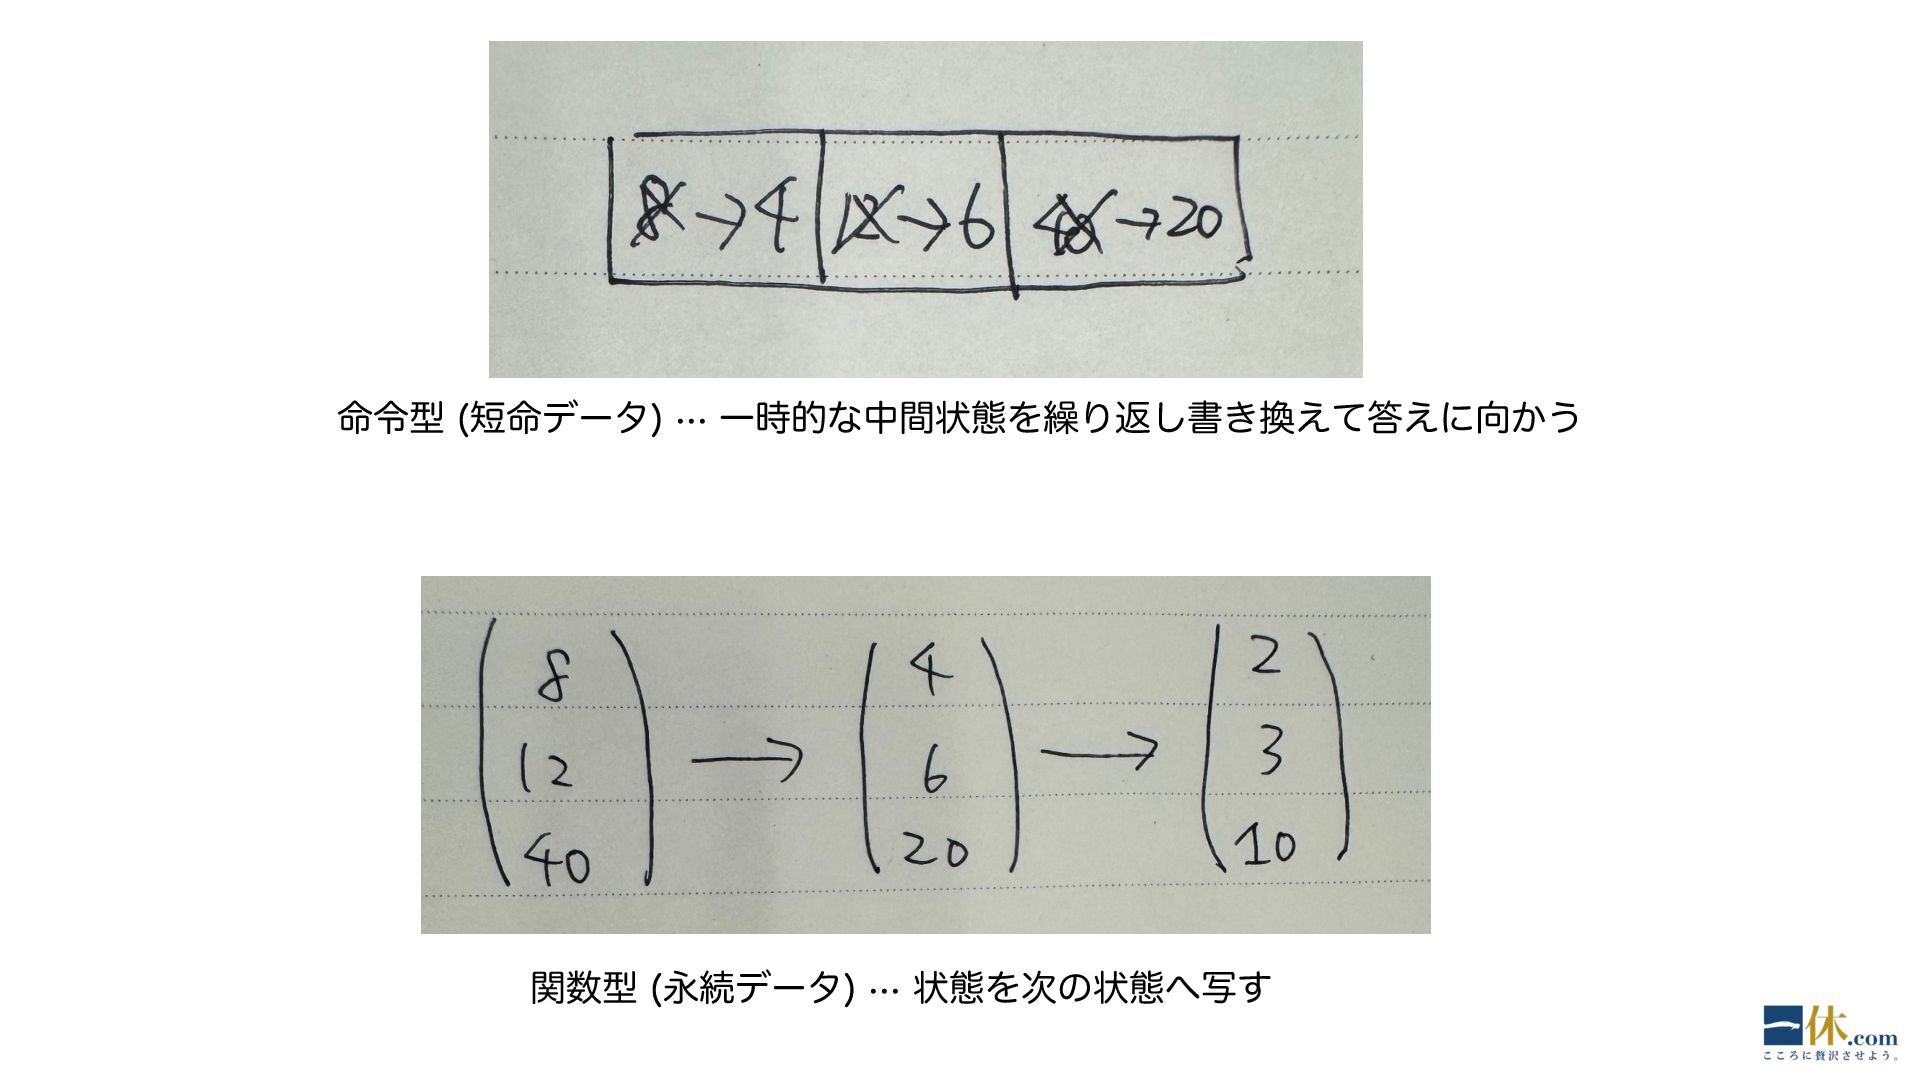 8 → 4 12 → 6 40 → 20
命令型 (短命データ) … 一時的な中間状態を繰り返し書き換えて答えに向かう
8 4 2
12 → 6 → 3
40 20 10
関数型 (永続データ) … 状態を次の状態へ写す
一休.com
こころに贅沢させよう。